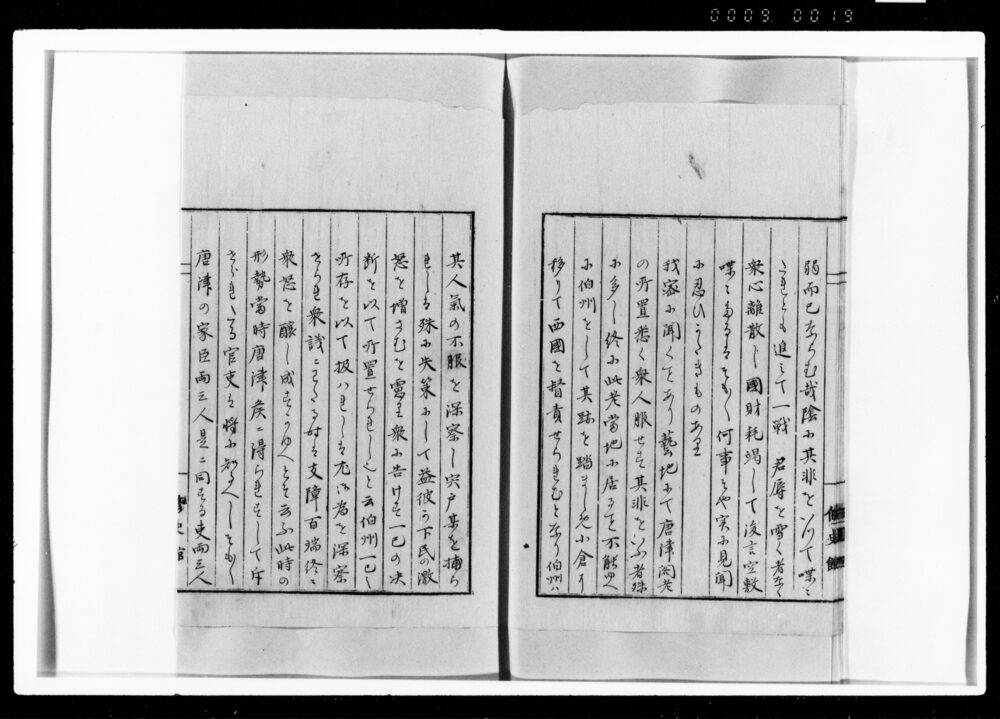 0009 0019
弱而已ならむ哉陰に其非をいひて喋々
されとも追さて一戦 君辱を雪く者なく
衆心離散し國財耗竭して後言空敷
喋々するはそもそも何事そや実に見聞
に忍ひかたきものあり
我密に聞くことあり藝地にて唐津閣老
の所置悉く衆人服せす其非をいふ者殊
に多し終に此老當地に居るを不能ゆへ
に伯州をして其跡を踏ましめ小倉に
移りて西國を督責せられむと茲に伯州ハ
其人氣の不服を深察し宍戸某を捕ら
れしは殊に失策にして益彼か下民の激
怒を増さむを慮り衆に告けす一己の决
断を以て所置せられしと云伯州一己之
所存を以て扱ハれしは尤以為を深察
せられ衆議にわたる時は支障百端終に
衆怒を醸し成すかゆへとそ云ふ此時の
形勢當時唐津侯に得られすして
られたる官吏は将に知るへしそもそも
唐津の家臣両三人是に同する吏両三人
修史館